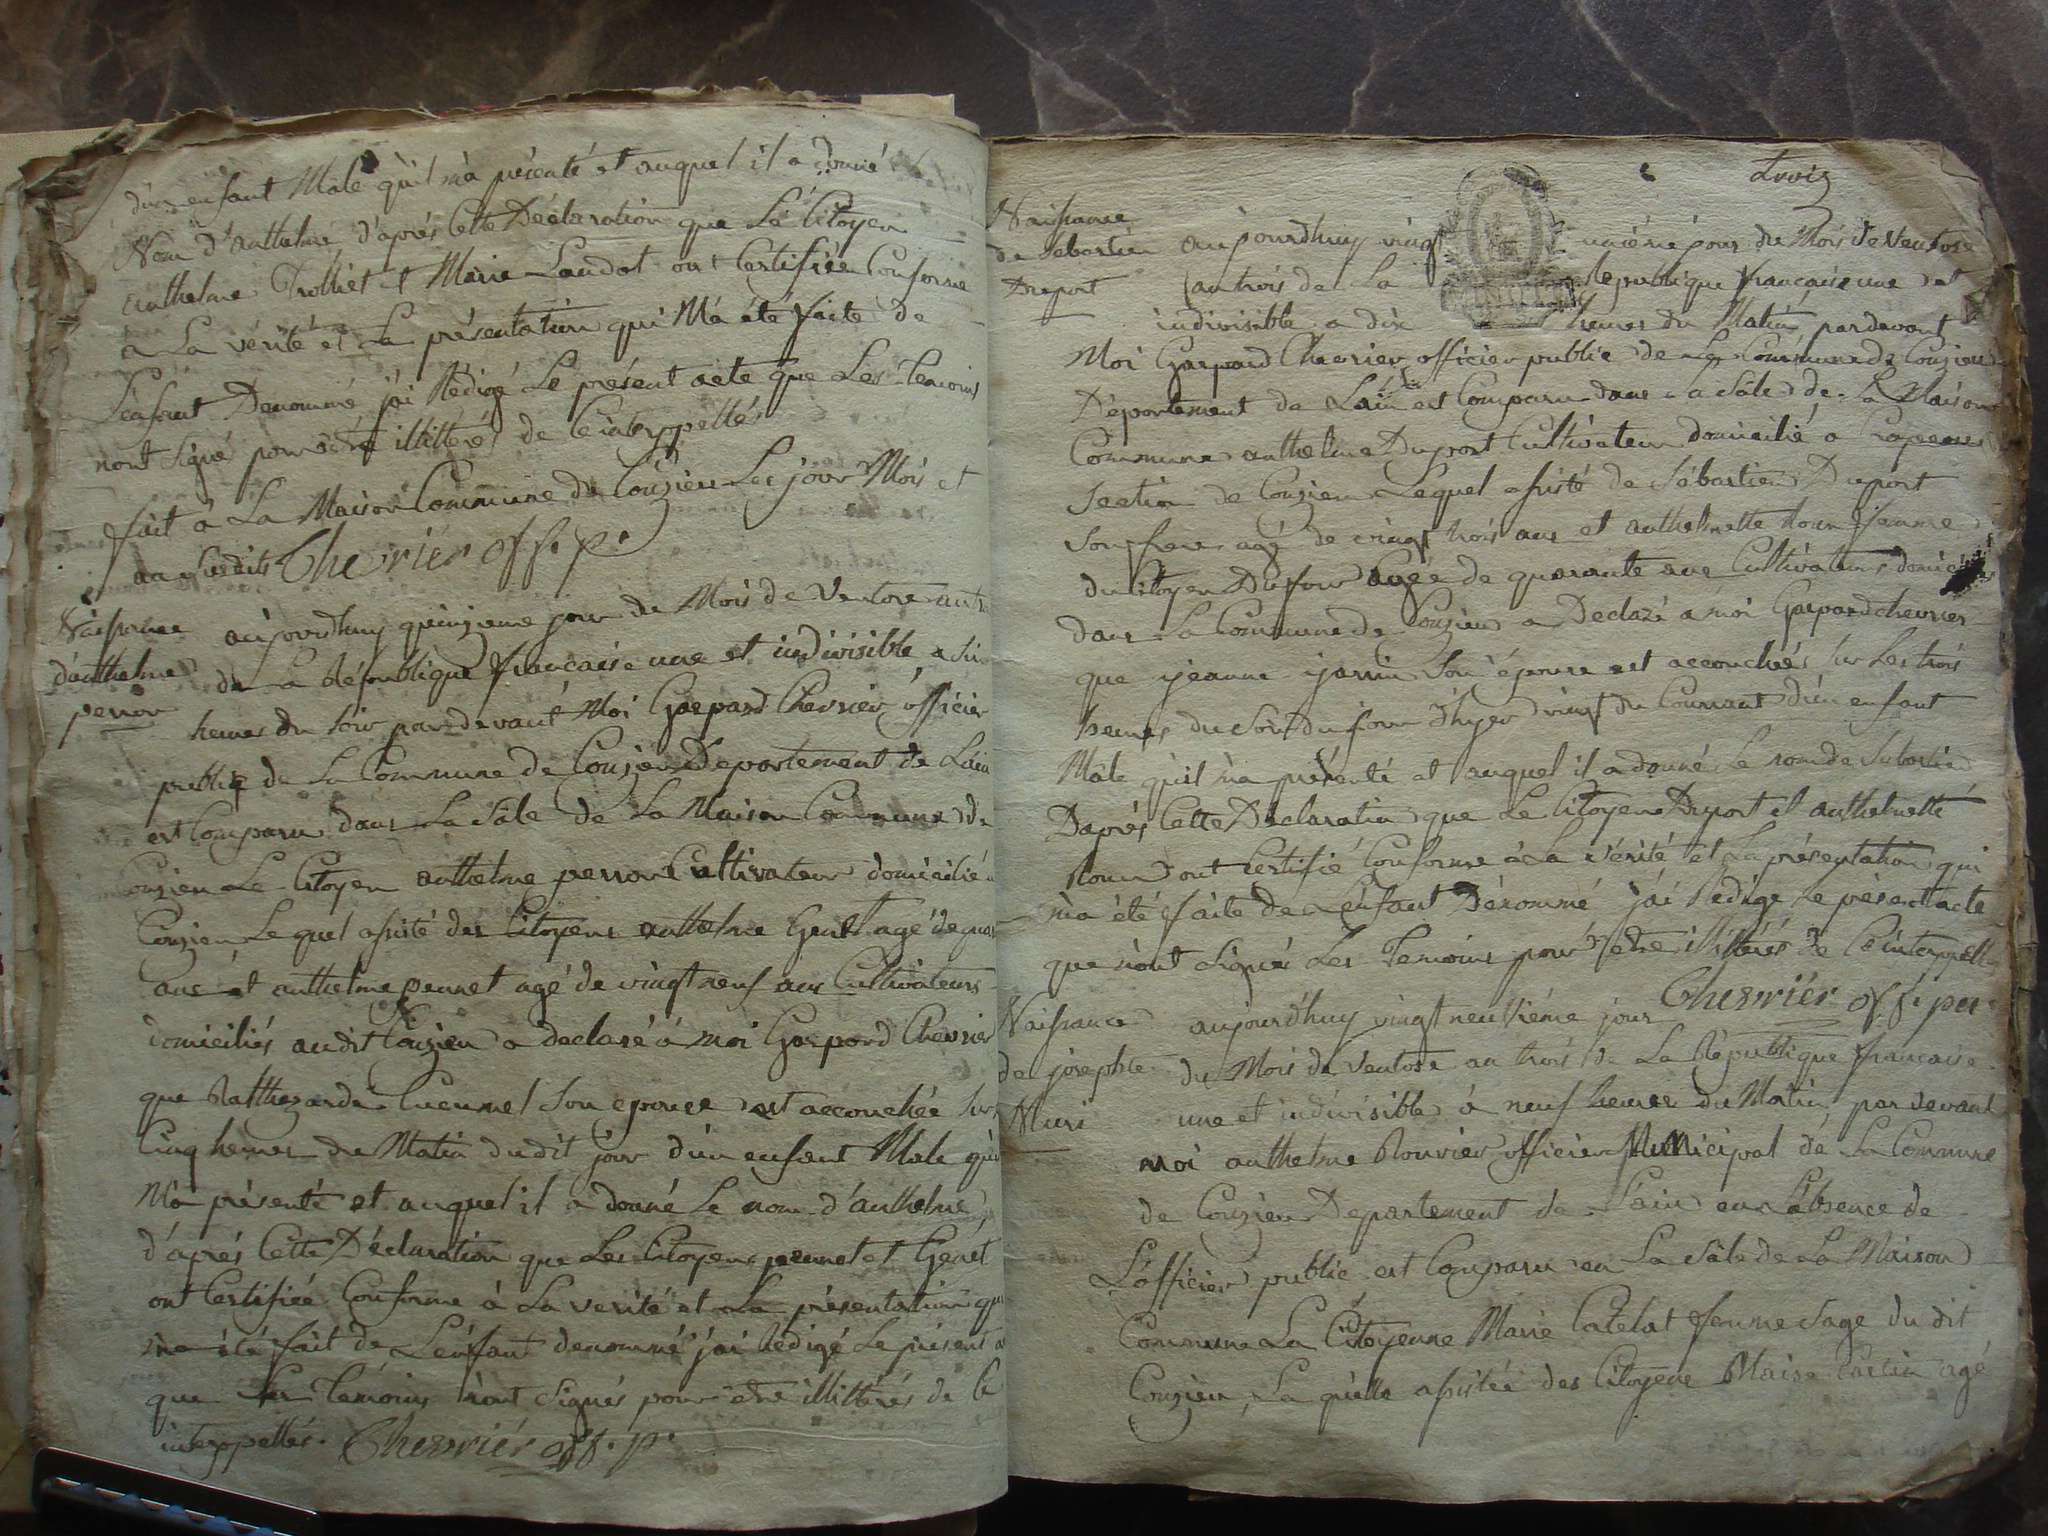 d'un enfant Mâle qu'il m'a présenté et auquel il a donné
Nom d'anthelme d'après Cette Déclaration que Le Citoyen
anthelme Trolliet et Marie Landot ont Certifiée Conforme
a La vérité et La présentation qui M'a été faite de
L'enfant Denommé j'ai Rédigé Le présent acte que Les Temoins
n'ont Signé pour être illitterés de Ce interppellés
fait a La Maison Commune de Couzieu Les jour Mois et
an Susdits Chevrier off. p.
Naissance
d'anthelme
perron
aujourdhuy quinzieme jour du Mois de Ventose an trois
de La République francaise une et indivisible a Six
heures du Soir par devant Moi Gaspard Chevrier officier
public de La Commune de Couzieu Département de L'ain
est Comparu dans La Sâle de La Maison Commune de
Couzieu Le Citoyen anthelme perron Cultivateur domicilié a
Couzieu Lequel assisté des Citoyens anthelme Genet agé de
ans et anthelme pennet agé de vingt neuf ans Cultivateurs
domiciliés audit Couzieu a declaré à moi Gaspard Chevrier
que Balthezarde Cucunel Son epouse est accouchée Sur
Cinq heures du Matin dudit jour d'un enfant Mâle qu'il
M'a présenté et auquel il a donné Le nom d'anthelme,
d'aprés Cette Déclaration que Les Citoyens pennet et Genet
ont Certifiée Conforme à La verité et La présentation qui
m'a été fait de L'enfant denommé j'ai Rédigé Le présent a
que Les Temoins n'ont Signés pour etre illittérés de Ce
interppellés. Chevriér off. p.
trois
Naissance
de Sébastien
Duport
aujourdhuy vingt unième jour du Mois de Ventose
an trois de La République francaise une et
indivisible a dix heures du Matin, pardevant
Moi Gaspard Chevrier officier public de La Commune de Couzieu
Département de L'ain est Comparu dans La Sâle de La Maison
Commune anthelme Duport Cultivateur domicilié a
Section de Couzieu Lequel assisté de Sébastien Duport
Son frere agé de vingt trois ans et anthelmette femme
du Citoyen Dufour agée de quarante ans Cultivateurs
dans La Commune de Couzieu a Declaré a moi Gaspard chevrier
que jeanne jannin Son épouse est accouchée Sur Les trois
heures du Soir du jour d'hyer vingt du Courrant d'un enfant
Mâle qu'il m'a présenté et auquel il a donné Le nom de Sebastien
D'aprés Cette Déclaration que Le Citoyen Duport et anthelmette
ont Certifié Conforme à La vérité et La présentation qui
m'a été faite de L'enfant Dénommé j'ai Redigé Le présent acte
que n'ont Signés Les Temoins pour etre illitérés de Ce interppellés
Chevriér off. pu.
Naissance
de josephte
Muri
aujourd'huy vingt neuvième jour
du Mois de Ventose an trois de La République francaise
une et indivisible à neuf heures du Matin par devant
moi anthelme Rouvier officier Municipal de La Commune
de Couzieu Departement de L'ain en L'absence de
L'officier public est Comparu en La Sâle de La Maison
Commune La Citoyenne Marie Catelat femme Sage du dit
Couzieu, La quelle assistée des Citoyens Blaise agé